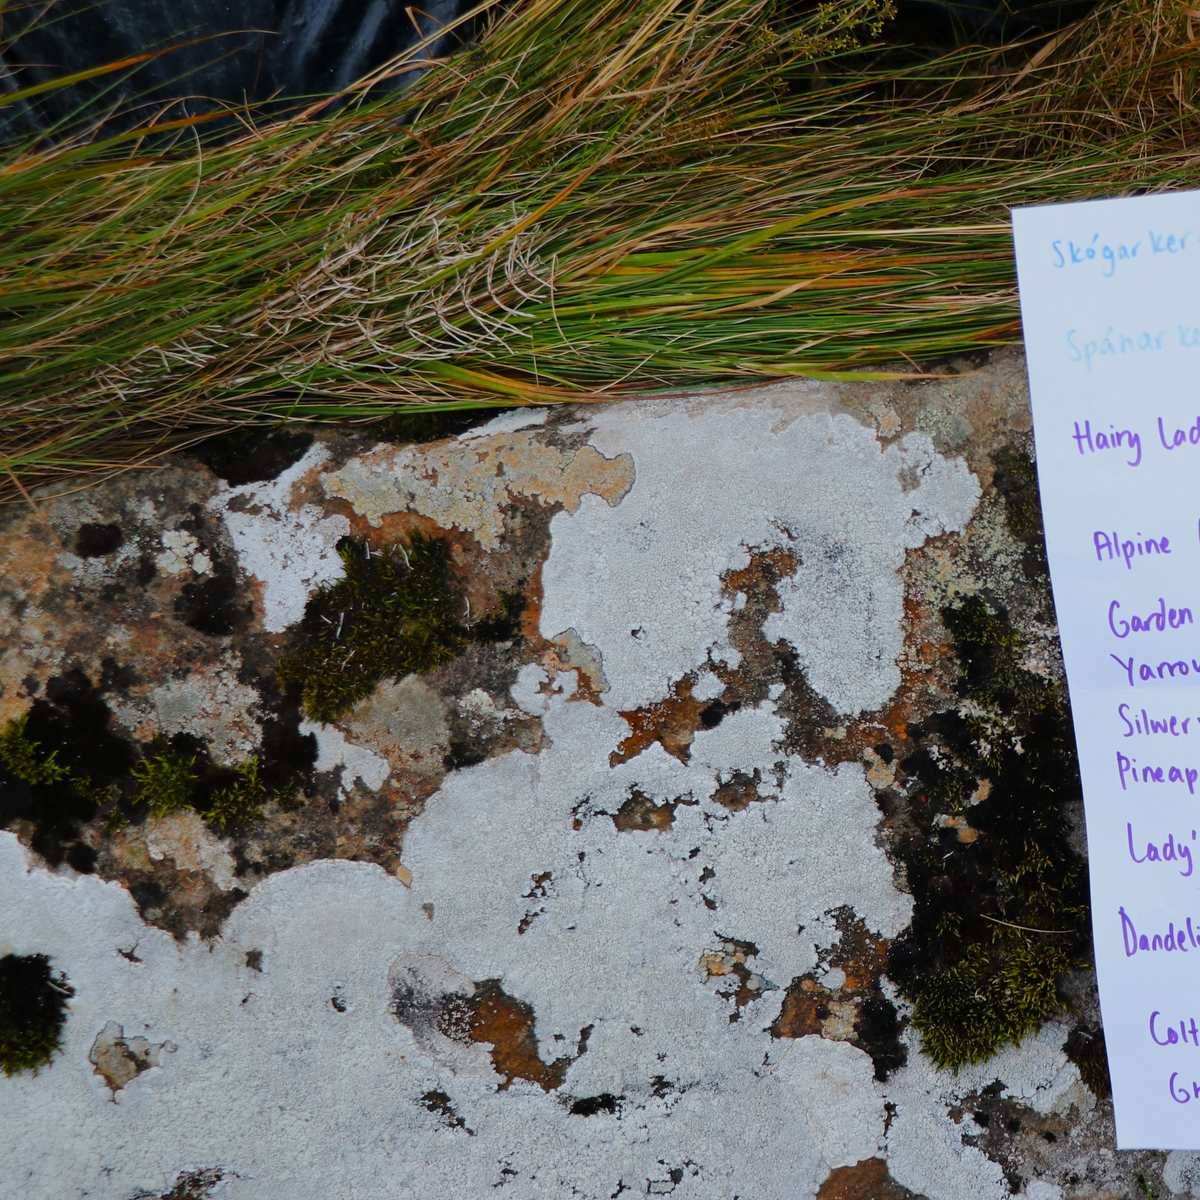 Skógarker
Spánar ke
Hairy Lad
Alpine
Garden
Yarrow
Silwer
Pineap
Lady'
Dandeli
Colt
Gr